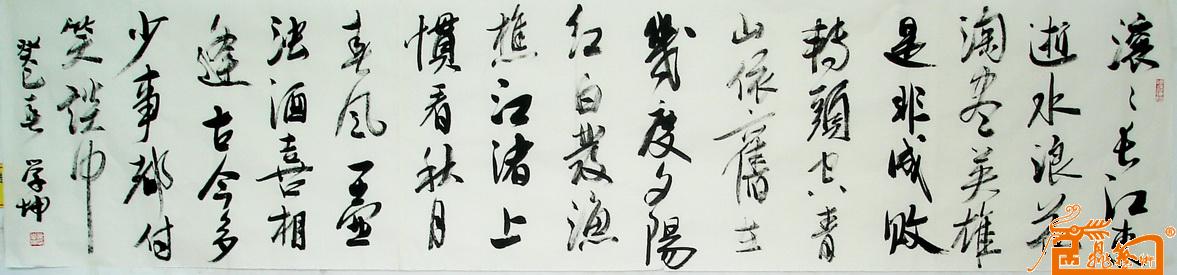 滚〻长江东
逝水浪花
淘尽英雄
是非成败
转頭空青
山依舊在
幾度夕陽
红白發渔
樵江渚上
慣看秋月
春风一壶
浊酒喜相
逢古今多
少事都付
笑談中
癸巳春 学坤